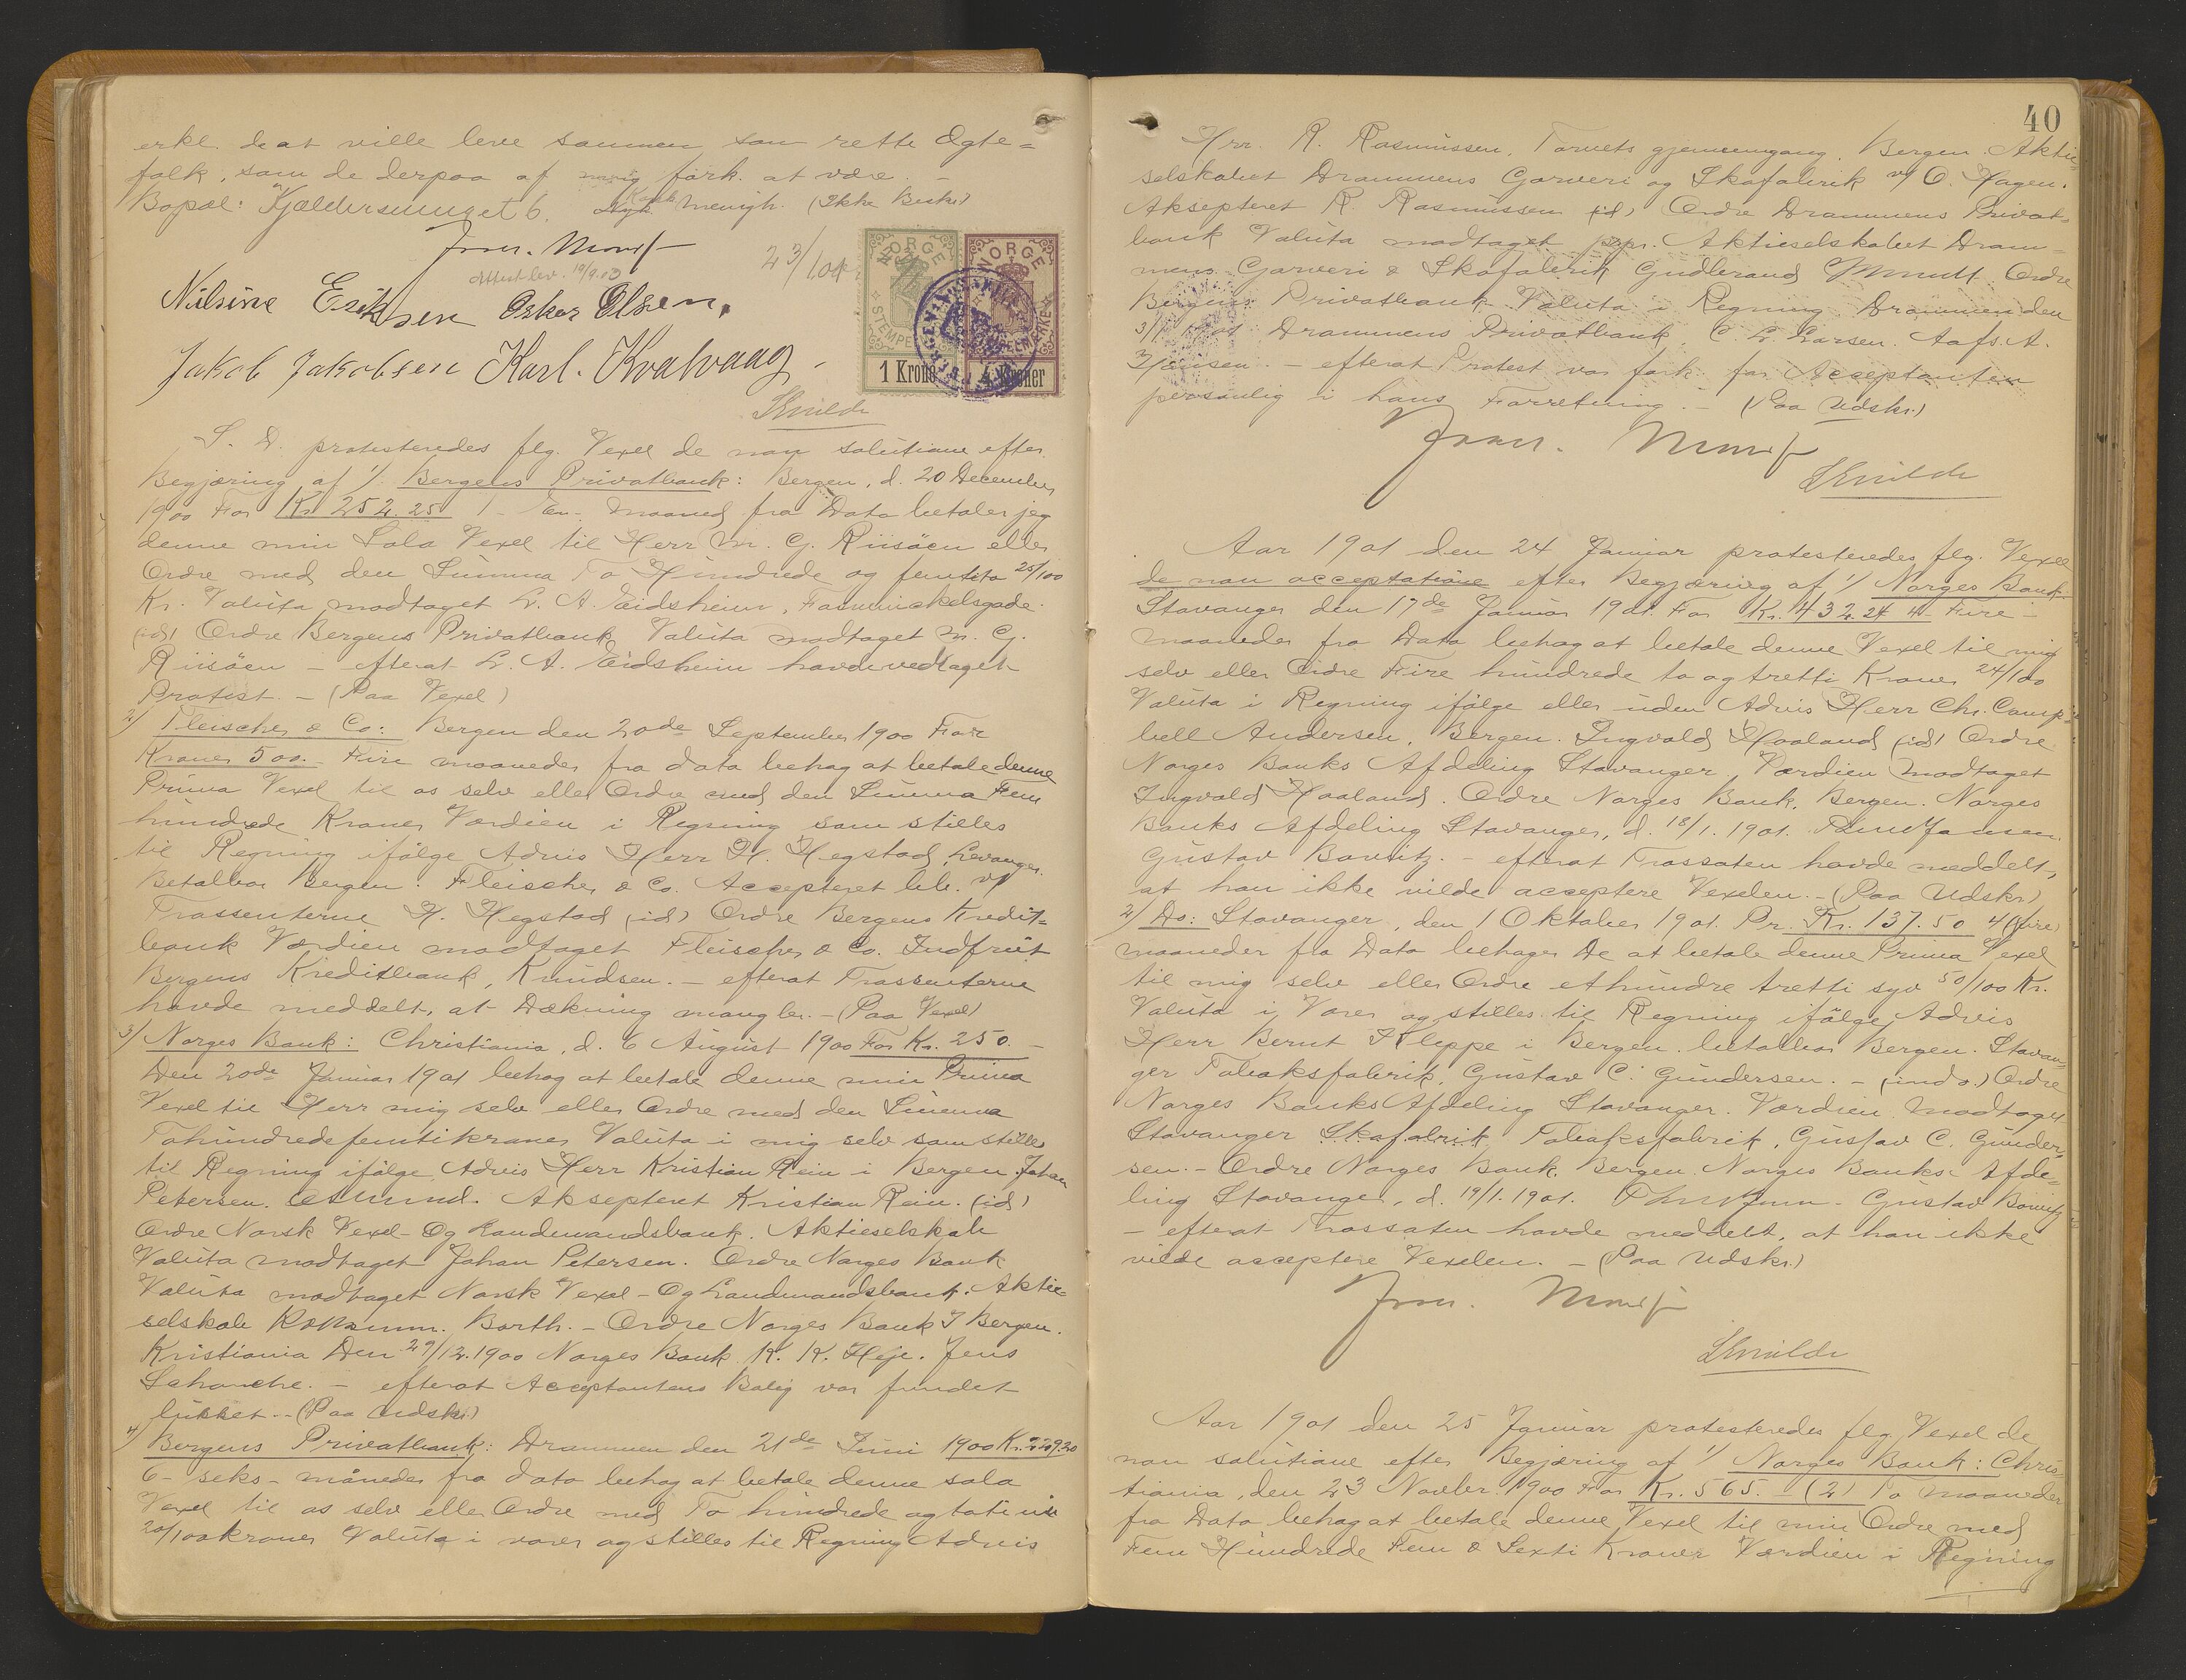 erkl. de at ville leve sammen som rette Ægte=
folk, som de derpaa af mig fork. at være. -
Bopæl: Kjeldersmuget 6. menigh. (Ikke Besk.)
23/1 01
Attest lev. 10/9.03
Nilsine Eriksen Oskar Olsen,
Jakob Jakobsen Karl. Kvalvaag
NORGE STEMPELMÆRKE 1 Krone
NORGE STEMPELMÆRKE 4 Kroner
S. D. protesteredes flg. Vexel de non solutione efter
Begjæring af 1/ Bergens Privatbank: Bergen, d. 20 December
1900 For Kr 252.25 1 - En - Maaned fra Dato betaler jeg
denne min Sola Vexel til Herr M. G. Riisöen eller
Ordre med den Summa To Hundrede og femtito 25/100
Kr. Valuta modtaget L. A. Eidsheim,
(id) Ordre Bergens Privatbank Valuta modtaget M. G.
Riisöen - efterat L. A. Eidsheim havde vedtaget
Protest. - (Paa Vexel)
2/ Fleischer & Co: Bergen den 20de September 1900 For
Kroner 500. - Fire maaneder fra dato behag at betale denne
Prima Vexel til os selv eller Ordre med den Summa Fem
hundrede Kroner Værdien i Regning som stilles
til Regning ifölge Advis Herr H. Hegstad, Levanger.
Betalbar Bergen. Fleischer & Co. Accepteret bet. v/
Trassenterne H. Hegstad (id) Ordre Bergens Kredit=
bank Værdien modtaget Fleischer & Co. Indfriet
Bergens Kreditbank, Knudsen. - efterat Trassenterne
havde meddelt, at Dækning mangler. - (Paa Vexel)
3/ Norges Bank: Christiania, d. 6 August 1900 For Kr. 250. -
Den 20de Januar 1901 behag at betale denne min Prima
Vexel til Herr mig selv eller Ordre med den Summa
Tohundredefemtikroner Valuta i mig selv som stilles
til Regning ifölge Advis Herr Kristian Rein i Bergen. Johan
Petersen. Aksepteret Kristian Rein. (id)
Ordre Norsk Vexel- Og Landmandsbank. Aktieselskab
Valuta modtaget Johan Petersen. Ordre Norges Bank
Valuta modtaget Norsk Vexel- Og Landmandsbank. Aktie=
selskab Barth. - Ordre Norges Bank I Bergen.
Kristiania Den 29/12.1900 Norges Bank K. K. Heje. Jens
- efterat Acceptantens Bolig var fundet
lukket. - (Paa Udskr.)
4/ Bergens Privatbank: Drammen den 21de Juni 1900 Kr. 229.20
6 - seks - måneder fra dato behag at betale denne sola
Vexel til os selv eller Ordre med To hundrede og toti ni
20/100 kroner Valuta i varer og stilles til Regning Advis
40
Hrr. R. Rasmussen, Torvets gjennemgang, Bergen. Aktie=
selskabet Drammens Garveri og Skofabrik v/ O. Hagen.
Aksepteret R. Rasmussen (id) Ordre Drammens Privat=
bank Valuta modtaget pr. Aktieselskabet Dram=
mens Garveri & Skofabrik Gudbrand Ordre
Bergens Privatbank Valuta i Regning Drammen den
3/1 1901 Drammens Privatbank, C. L. Larsen. Aafs. A.
Hansen. - efterat Protest var fork. for Acceptanten
personlig i hans Forretning. - (Paa Udskr.)
Aar 1901 den 24 Januar protesteredes flg. Vexel
de non acceptatione efter Begjæring af 1/ Norges Bank.
Stavanger den 17de Januar 1901. For Kr. 432.24 4 Fire -
maaneder fra Dato behag at betale denne Vexel til mig
selv eller Ordre Fire hundrede to og tretti Kroner 24/100
Valuta i Regning ifölge eller uden Advis Herr Chr. Camp=
bell Andersen, Bergen. Ingvald Haaland (id) Ordre
Norges Banks Afdeling Stavanger, Værdien modtaget
Ingvald Haaland. Ordre Norges Bank, Bergen. Norges
Banks Afdeling Stavanger, d. 18/1.1901.
Gustav - efterat Trassaten havde meddelt,
at han ikke vilde acceptere Vexelen. - (Paa Udskr.)
2/ Do: Stavanger, den 1 Oktober 1901. Pr. Kr. 137.50 4 (fire)
maaneder fra Dato behager De at betale denne Prima Vexel
til mig selv eller Ordre ethundre tretti syv 50/100 Kr.
Valuta i Varer og stilles til Regning ifölge Advis
Herr Bernt Kleppe i Bergen. betalbar Bergen. Stavan=
ger Tobaksfabrik, Gustav C. Gundersen. - (indo.) Ordre
Norges Banks Afdeling Stavanger. Værdien modtaget
Stavanger Skofabrik Tobaksfabrik, Gustav C. Gunder=
sen. - Ordre Norges Bank, Bergen. Norges Banks Afde=
ling Stavanger, d. 19/1.1901. Gustav
- efterat Trassaten havde meddelt, at han ikke
vilde acceptere Vexelen. - (Paa Udskr.)
Aar 1901 den 25 Januar protesteredes flg. Vexel de
non solutione efter Begjæring af 1/ Norges Bank: Chris=
tiania, den 23 Novbr. 1900 For Kr. 565. (2) To maaneder
fra Dato behag at betale denne Vexel til min Ordre med
Fem Hundrede Fem & Sexti Kroner Værdien i Regning